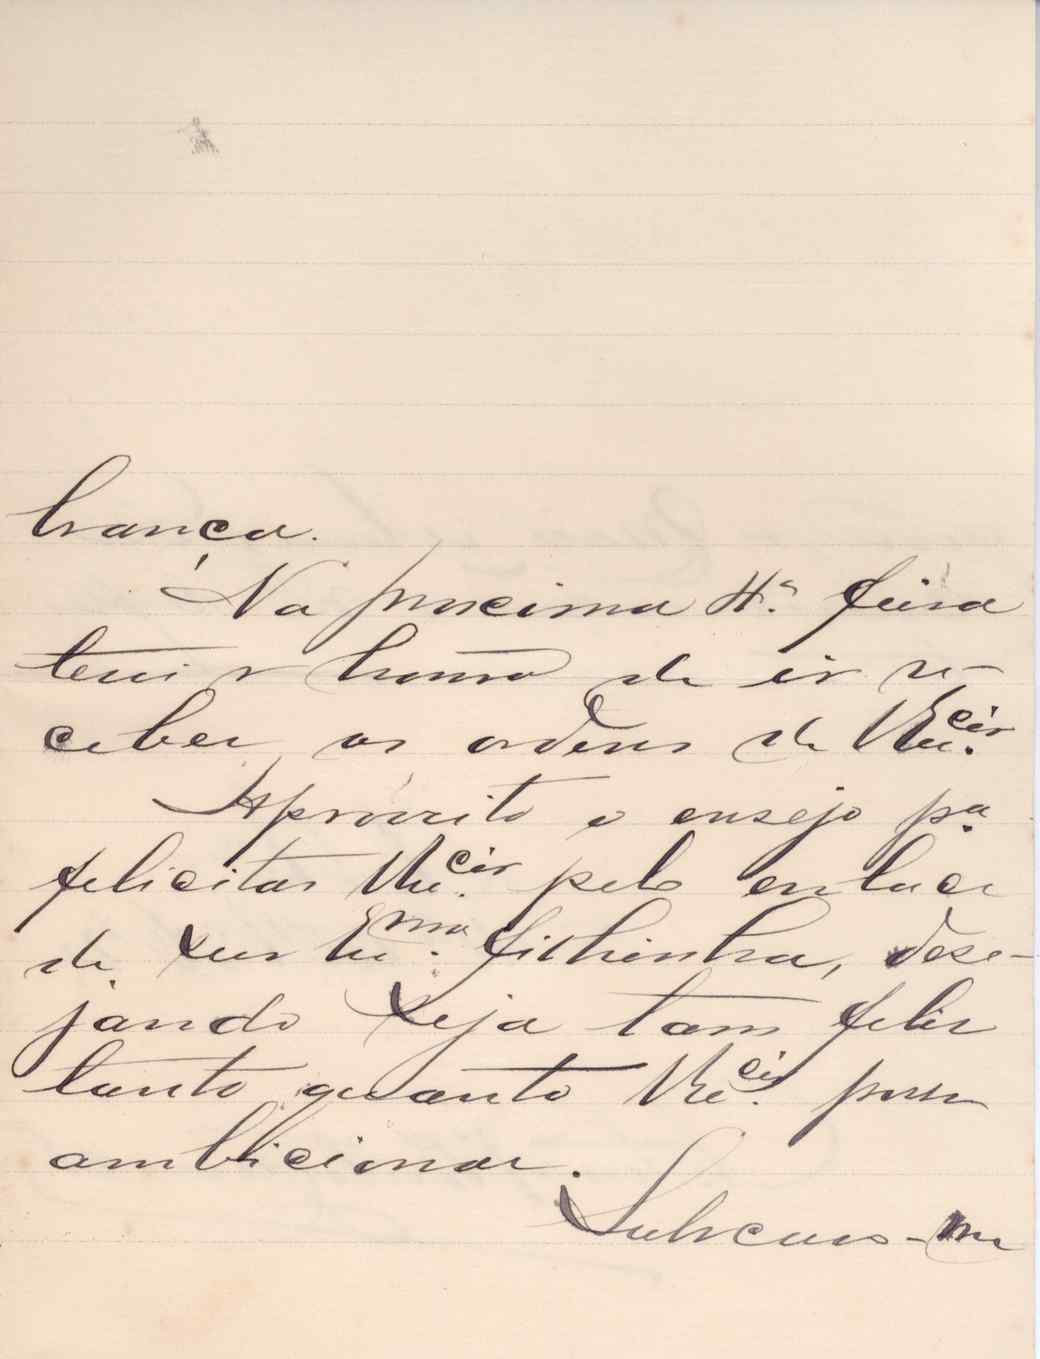 brança.
Na proxima 4.ª feira
terei a honra de ir re-
ceber as ordens de V Ex.cia
Aproveito o ensejo p.a
felicitar V Ex.cia pelo enlace
de sua Ex.ma filhinha, dese-
jando seja tam feliz
tanto quanto V Ex.cia possa
ambicionar.
Subscrevo-me